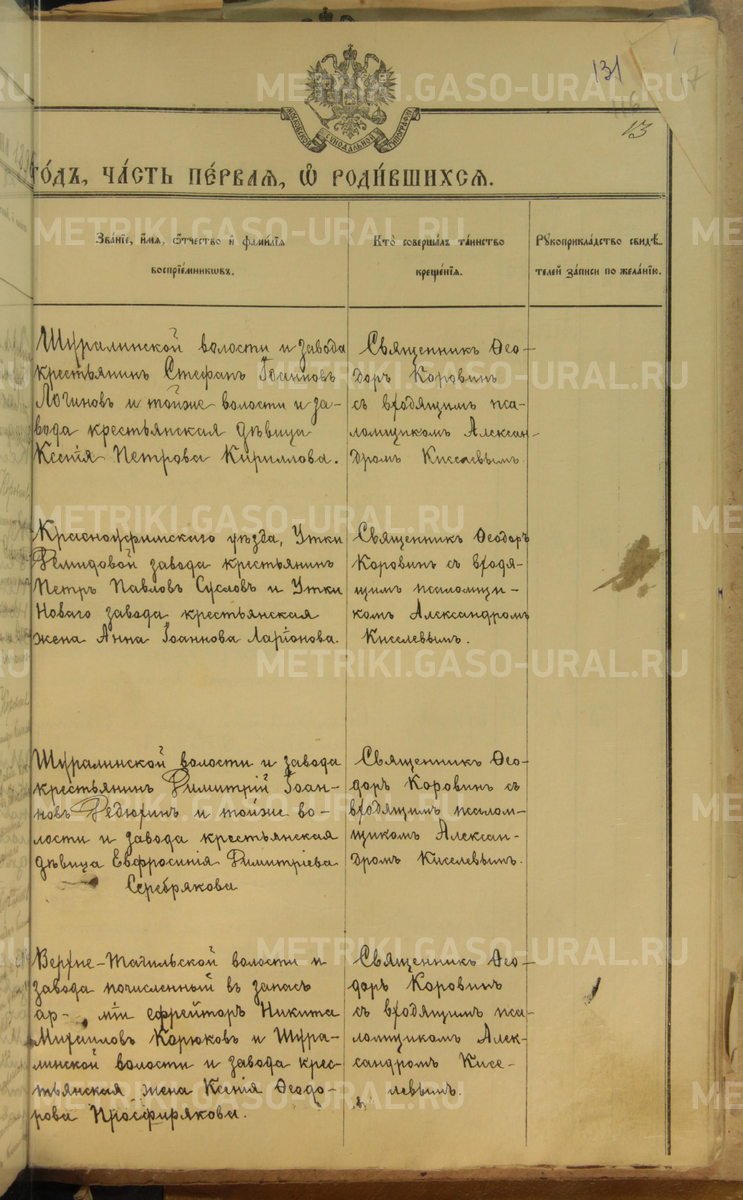 131
116
17
13
МОСКОВСКОЙ СѴНОДАЛЬНОЙ ТИПОГРАФІИ
го́дъ, ча́сть пе́рвая, ѡ҆ роди́вшихся.
Зва́ніе, и҆́мя, ѻ҆́тчество и҆ фами́лія
воспріе́мниковъ.
Кто̀ соверша́лъ та́инство
креще́нія.
Рꙋкоприкла́дство свидѣ́-
телей за́писи по жела́нію.
Шуралинской волости и завода
крестьянинъ Стефанъ Іоанновъ
Логиновъ и тойже волости и за-
вода крестьянская дѣвица
Ксенія Петрова Кириллова.
Священникъ Ѳео-
доръ Коровинъ
съ входящимъ пса-
ломщикомъ Алексан-
дромъ Киселевымъ
Красноуфимскаго уѣзда, Утки
Демидовой завода крестьянинъ
Петръ Павловъ Сусловъ и Утки
Новаго завода крестьянская
жена Анна Іоаннова Ларіонова.
Священникъ Ѳеодоръ
Коровинъ съ входя-
щимъ псаломщи-
комъ Александромъ
Киселевымъ.
Шуралинской волости и завода
крестьянинъ Димитрій Іоан-
новъ Редюхинъ и тойже во-
лости и завода крестьянская
дѣвица Евфросинія Димитріева
Серебрякова
Священникъ Ѳео-
доръ Коровинъ съ
входящимъ псалом-
щикомъ Алексан-
дромъ Киселевымъ.
Верхне-Тагильской волости и
завода почисленный въ запасъ
ар- міи ефрейторъ Никита
Михаиловъ Корюковъ и Шура-
линской волости и завода крес-
тьянская жена Ксенія Ѳеодо-
рова Просфирякова.
Священникъ Ѳео-
доръ Коровинъ
съ входящимъ пса-
ломщикомъ Алек-
сандромъ Кисе-
левымъ.
METRIKI.GASO-URAL.RU